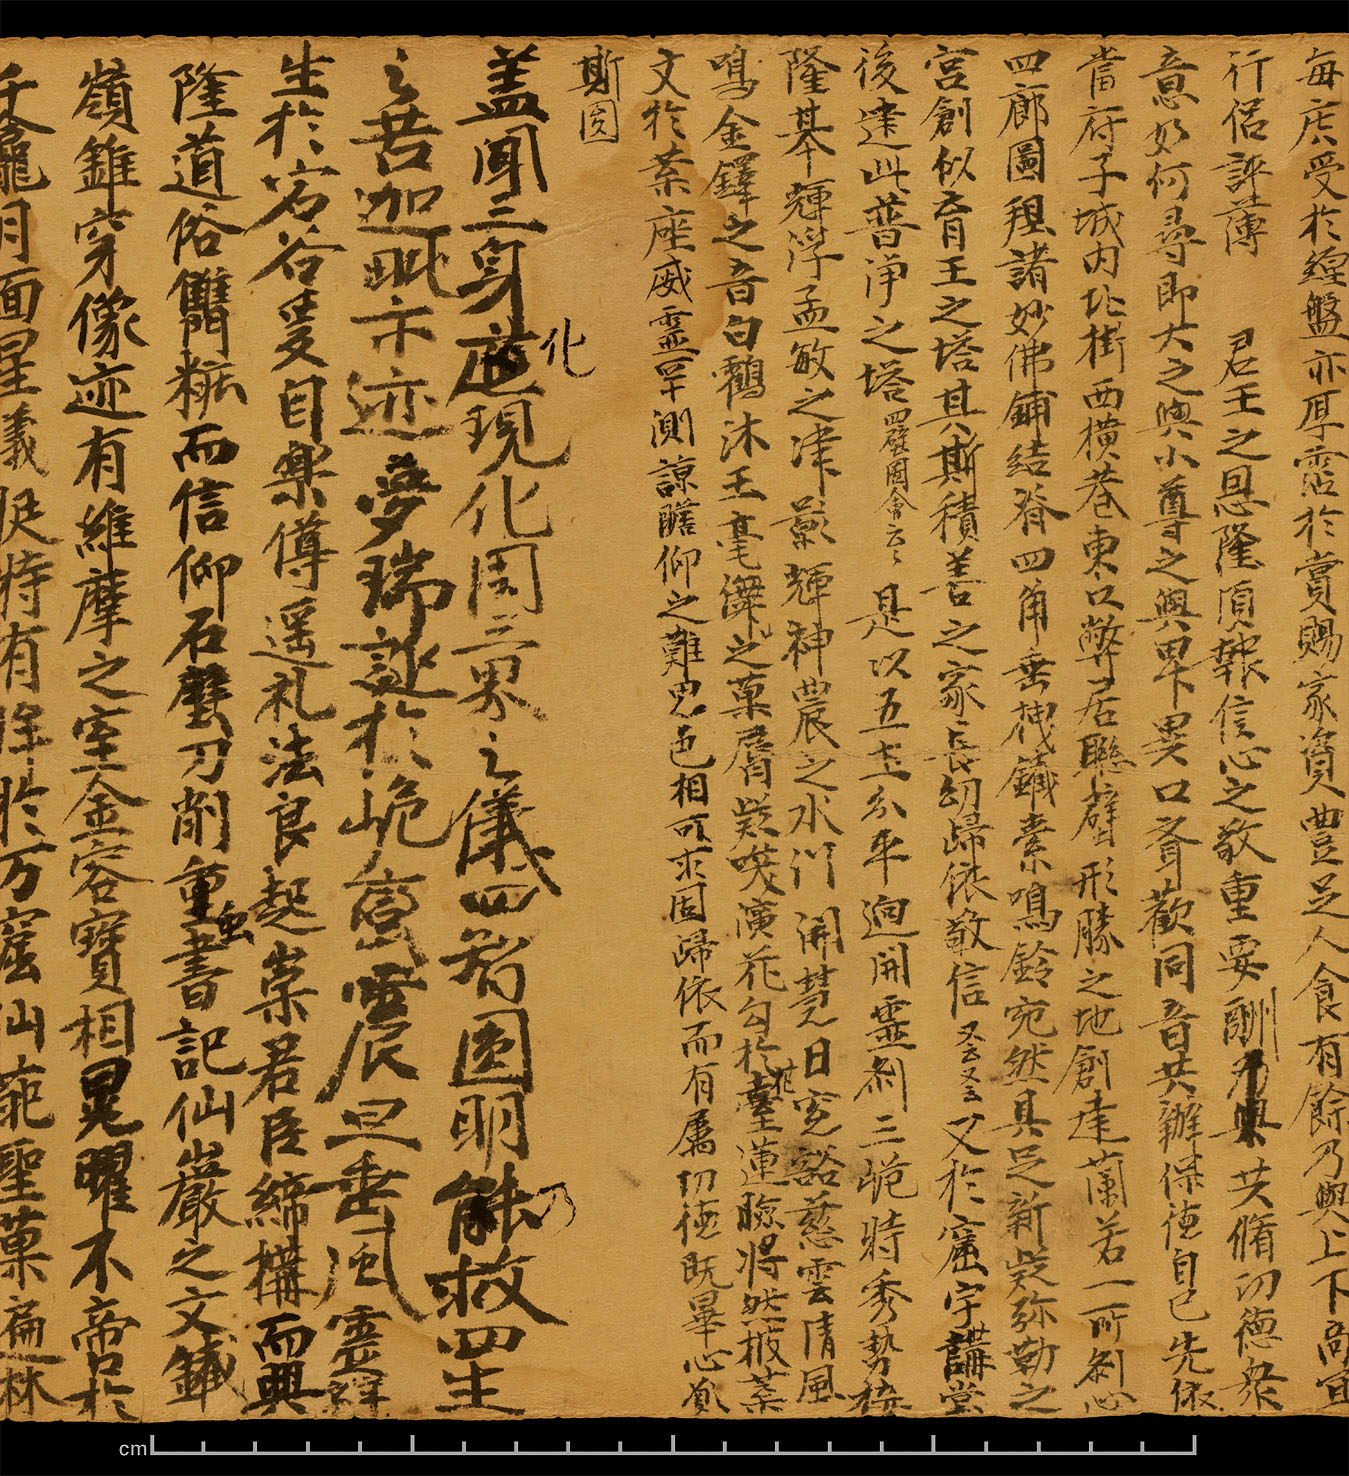 每庆受於緸盤亦厚霑於賞賜家資豊足人食有餘乃與上下商宜
行侶評薄 君王之恩隆須報信心之敬重要酬乃與共脩功德衆
意如何尋即大之與小尊之與卑下異口齊歡同音共辦保德自己先依
當府子城内北街西橫巷東口弊居聯壁形勝之地創建蘭若一所剎心
四廊圖塑諸妙佛鋪結脊四角垂拽鐵索鳴鈴宛然具足新疑弥勒之
宮創似育王之塔其斯積善之家長幼歸依敬信 又於窟宇講堂
後建此普淨之塔四壁圖會云云 是以五土分平迥開靈剎三峗特秀勢接
隆基本輝浮孟敏之津影輝神農之水門開慧日寬豁慈雲清風
鳴金鐸之音白鶴沐玉毫之菓脣疑笑演花勾於臺蓮臉將然披葉
文於葉座威靈罕測諒瞻仰之難思色相可求固歸依而有属功德既畢心願
斯圆
盖聞三身應化現化周三界之儀四智圆明能乃救四生
之苦迦毗示迹夢瑞誕於峗雲辰旦垂風靈釋
生於宕谷隻自樂僔遥礼法良起崇君臣締構而興
隆道俗鐫粧而信仰石壁刀削重書記仙巖之文鐵
嶺錐穿像迹有維摩之室金容寶相晃曜不啻於
千龕月面星義脡特有餘於万窟仙葩聖菓遍林
化